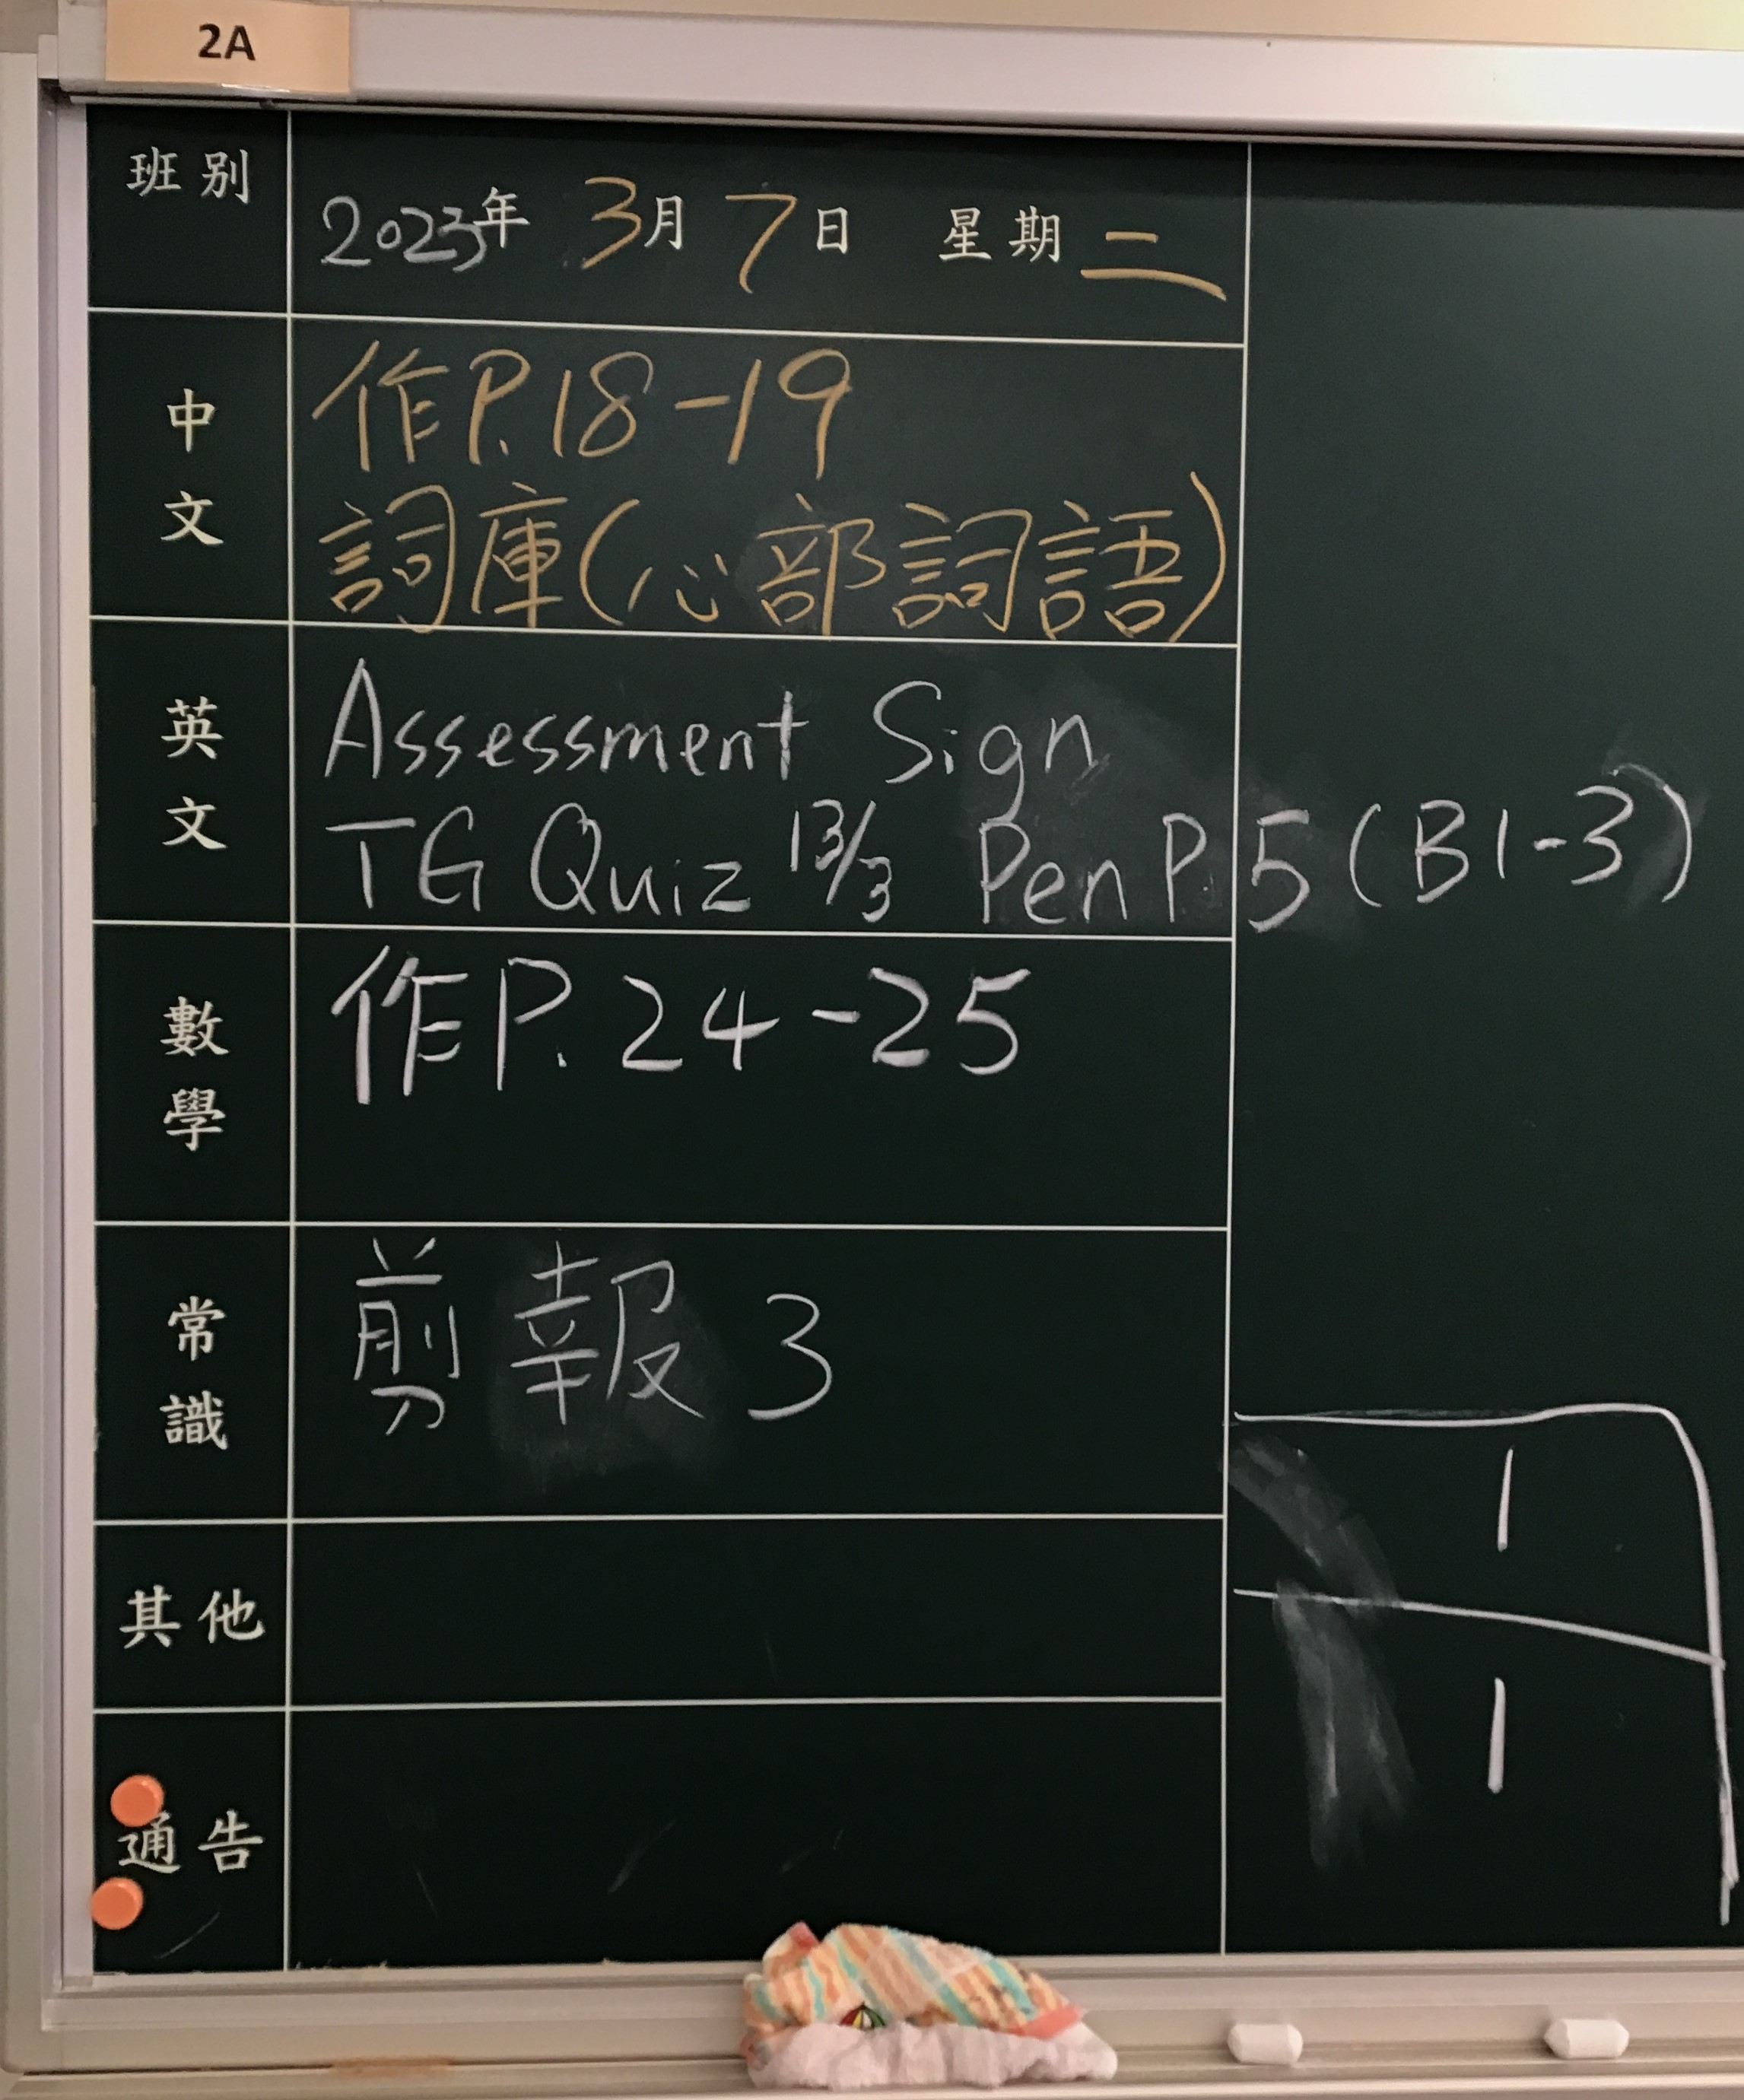 2A
班別
2023年 3月7日 星期二
中文
作P.18-19
詞庫(心部詞語)
英文
Assessment Sign
TG Quiz 13/3 Pen P.5(B1-3)
數學
作P.24-25
常識
剪報3
其他
1
通告
1